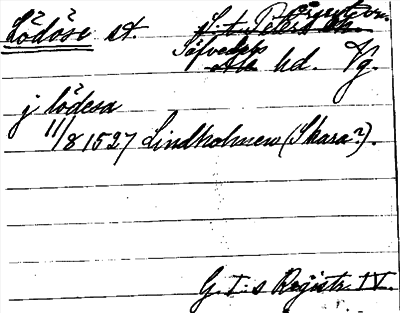 Lödöse st. S:t Peders sn.
Säfvedals
Ale hd. Vg.
j lödesa
11/8 1527 Lindholmen (Skara?).
G. I:s Registr. IV.